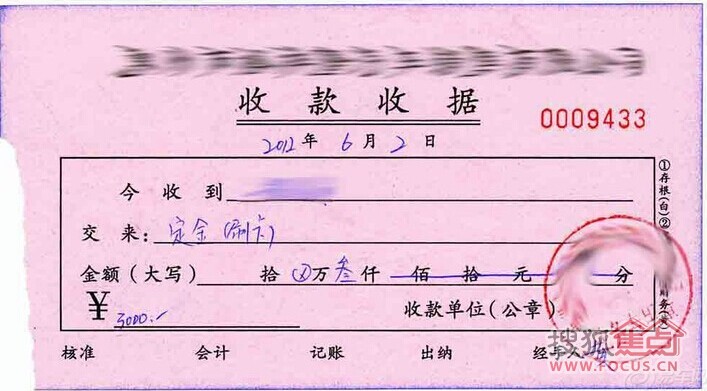 收款收据
0009433
2012年6月2日
今收到
交来：定金（刷卡）
金额（大写） 拾ⓧ万叁仟 佰 拾 元 分
¥3000.- 收款单位（公章）
核准 会计 记账 出纳 经手人
①存根（白）②
搜狐焦点
WWW.FOCUS.CN